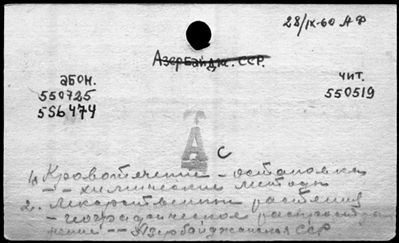 28/IX-60 АФ
Азербайдж. ССР.
абон.
550725
556474
чит.
550519
А
С
1. Кровотечение - остановка
- - химические методы
2. Лекарственные растения
- географическое распростра
нение -- Азербайджанская ССР